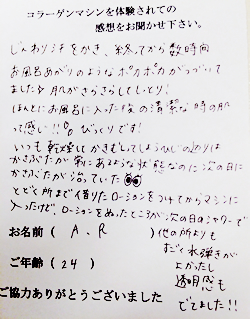 コラーゲンマシンを体験されての
感想をお聞かせ下さい。
じんわり汗をかき、終ってから数時間
お風呂あがりのようなポカポカがつづいて
ました♪肌がさらさらしとしとり!
ほんとにお風呂に入った後の清潔な時の肌
って感じ!!びっくりです!
いつも乾燥してかきむしってしまうひじの辺りは
かさぶたが常にあるような状態なのに次の日に
かさぶたが治っていた
とどく所まで借りたローションをつけてからマシンに
入ったけど、ローションをぬったところが次の日シャワーで
お名前( A.R )他の所よりも
すごく水弾きが
よかったし
ご年齢(24)
透明感も
でてました!!
ご協力ありがとうございました